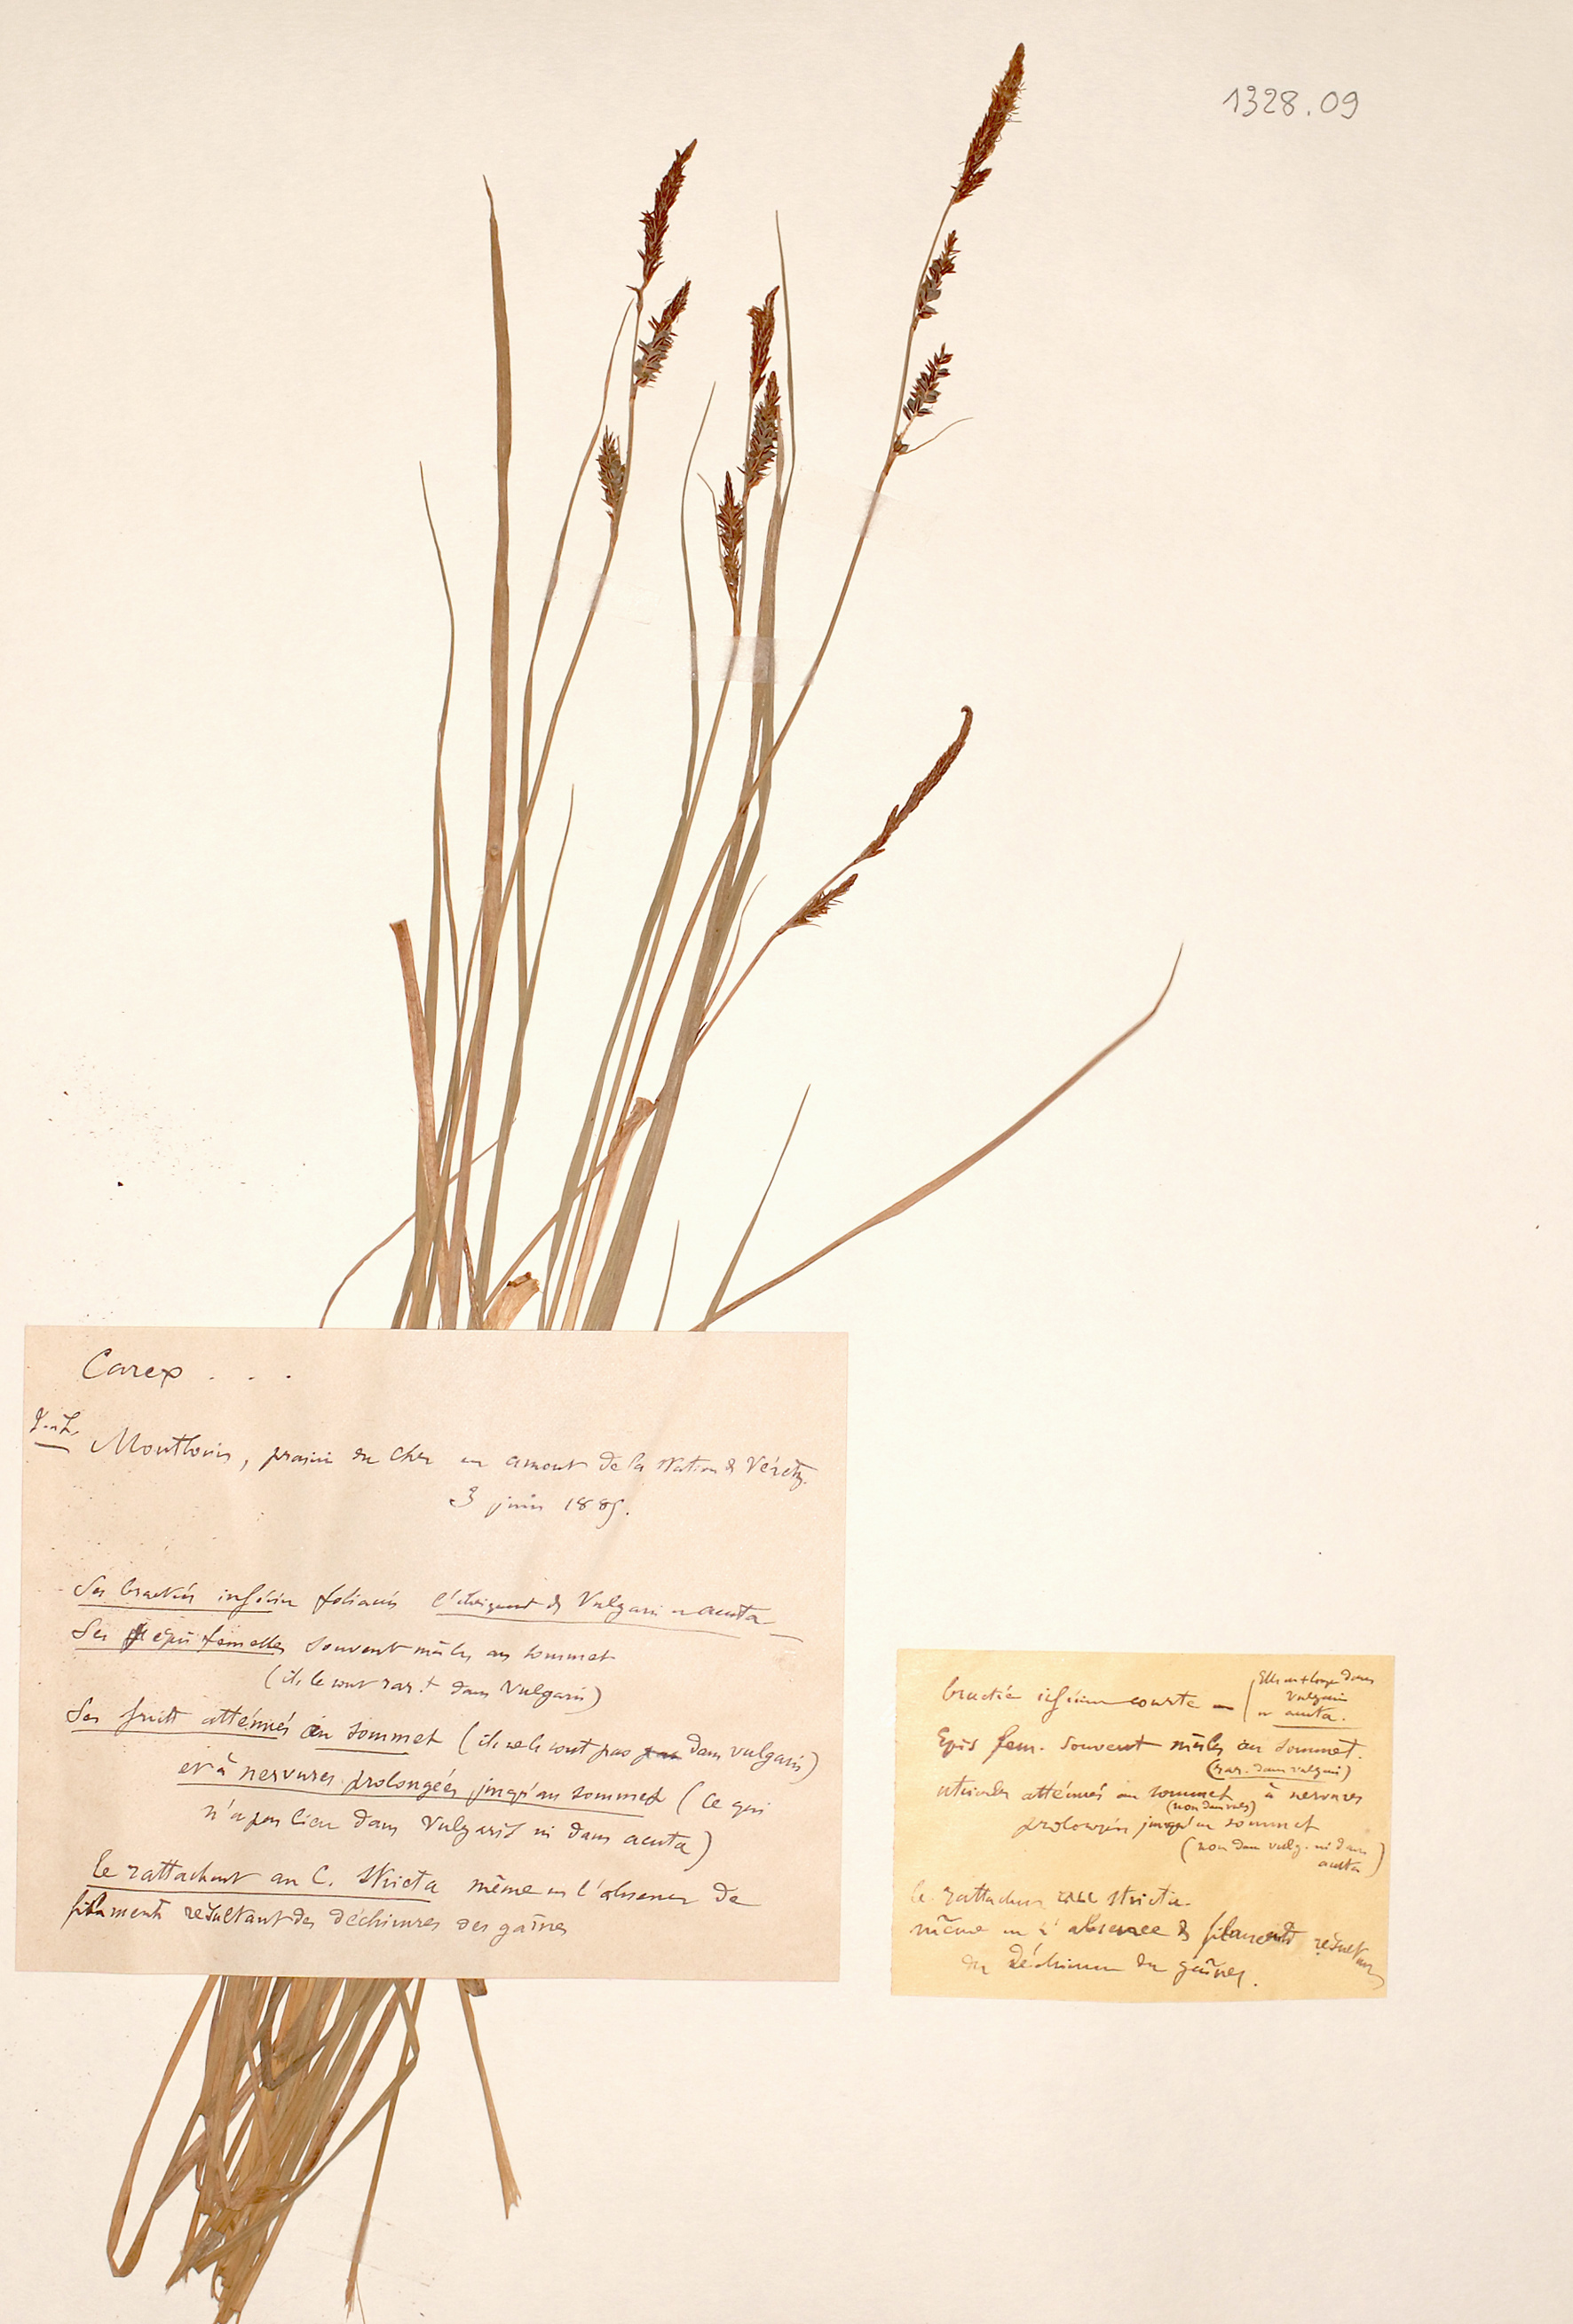 1328.09
Carex . . .
Montlouis, prairie du Cher en amont de la station de Véretz.
3 juin 1885.
Ses bractées infér foliacées l'éloignent de Vulgaris et acuta
Ses épis femelles souvent mâles au sommet
(ils le sont rar.t dans Vulgaris)
Ses fruits atténués au sommet (ils ne le sont pas dans vulgaris)
et à nervures prolongées jusqu'au sommet (ce qui
n'a pas lieu dans Vulgaris ni dans acuta)
le rattachent au C. Stricta même en l'absence de
filaments résultant des déchirures des gaînes
bractée infér courte
Elles est longue dans
Vulgaris
et acuta.
Epis fem. souvent mâles au sommet.
(rar. dans vulgaris)
utricules atténués au sommet à nervures
(non dans vulg)
prolongées jusqu'au sommet
(non dans vulg. ni dans
acuta)
le rattachent stricta
même en l'absence de filaments résultant
des déchirures des gaînes.